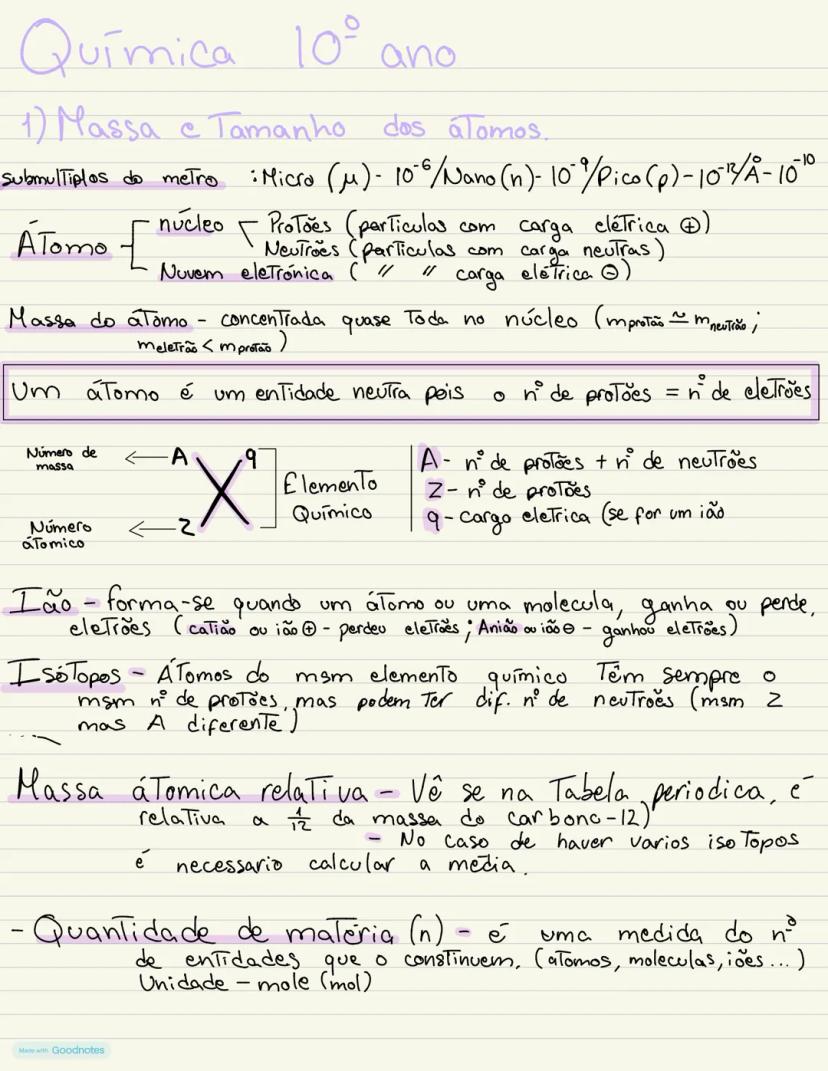 Química 10º ano
1) Massa e Tamanho dos átomos.
submultiplos do metro : Micro (μ) - 10⁻⁶ / Nano (n) - 10⁻⁹ / Pico (p) - 10⁻¹² / Å - 10⁻¹⁰
Átomo
núcleo
Protões (particulas com carga elétrica ⊕)
Neutrões (particulas com carga neutras)
Nuvem eletrónica ( " " carga elétrica ⊖)
Massa do átomo - concentrada quase toda no núcleo (m protão ≃ m neutrão ;
m eletrão < m protão)
Um átomo é um entidade neutra pois o nº de protões = nº de eletrões
Número de
massa
← A
X
q
← Z
Número
átomico
Elemento
Químico
A - nº de protões + nº de neutrões
Z - nº de protões
q - cargo eletrica (se for um ião
Ião - forma-se quando um átomo ou uma molecula, ganha ou perde,
eletrões (catião ou ião ⊕ - perdeu eletrões ; Anião ou ião ⊖ - ganhou eletrões)
Isótopos - Átomos do msm elemento químico Têm sempre o
msm nº de protões, mas podem ter dif. nº de neutrões (msm Z
mas A diferente)
Massa átomica relativa - Vê se na Tabela periodica, é
relativa a 1/12 da massa do carbono-12)
- No caso de haver varios isotopos
é necessario calcular a media.
- Quantidade de matéria (n) - é uma medida do nº
de entidades que o constinuem, (atomos, moleculas, iões ...)
Unidade - mole (mol)
Made with Goodnotes